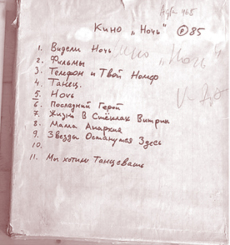 Кино „Ночь" ℗85
1. Видели Ночь
2. Фильмы
3. Телефон и Твой Номер
4. Танец.
5. Ночь
6. Последний Герой
7. Жизнь В Стёклах Витрин
8. Мама Анархия
9. Звезды Останутся Здесь
10.
11. Мы хотим Танцевать